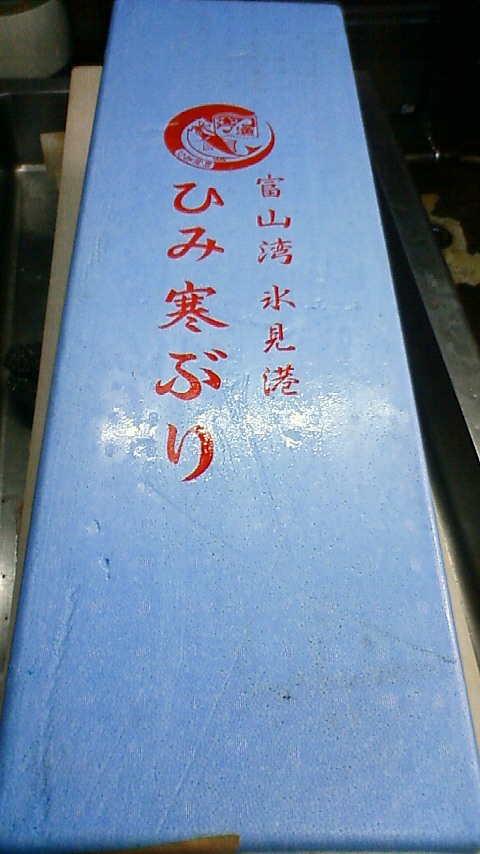 富山湾 氷見港
ひみ寒ぶり